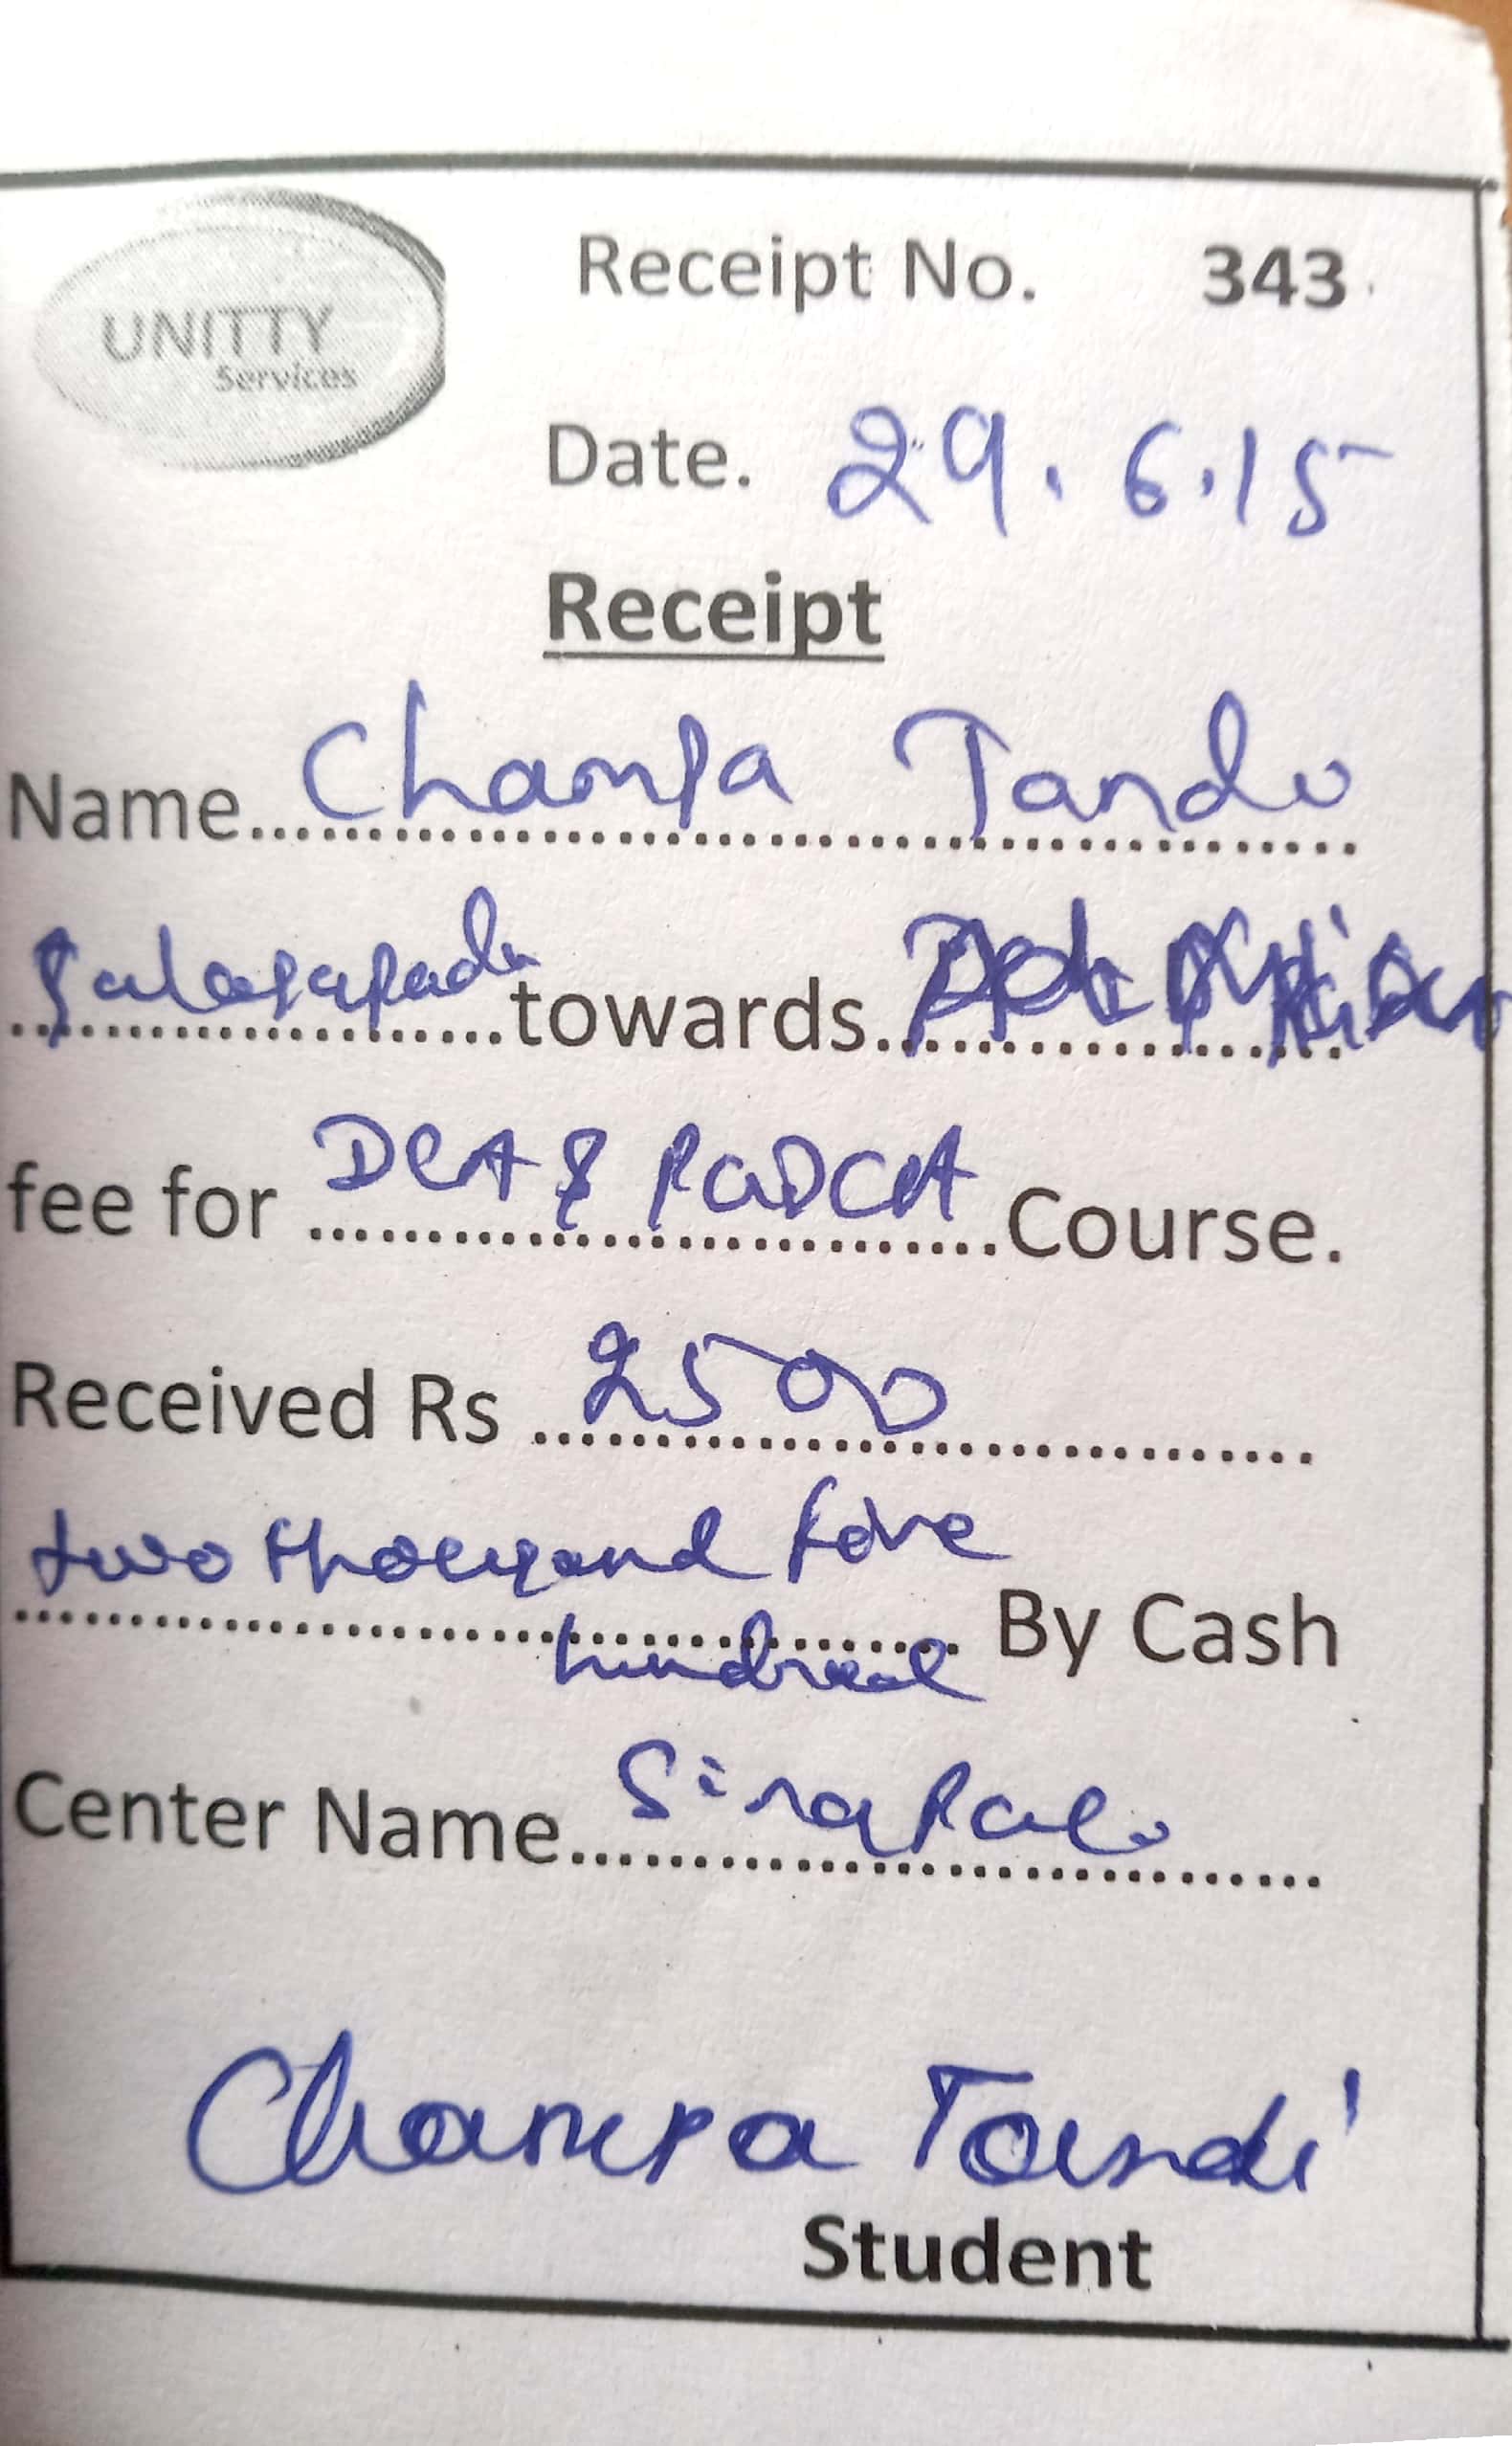 UNITTY
Services
Receipt No. 343
Date. 29.6.15
Receipt
Name Champa Tandi
towards
fee for DCA & PGDCA Course.
Received Rs 2500
two thousand five
hundred By Cash
Center Name Sinapali
Champa Tandi
Student